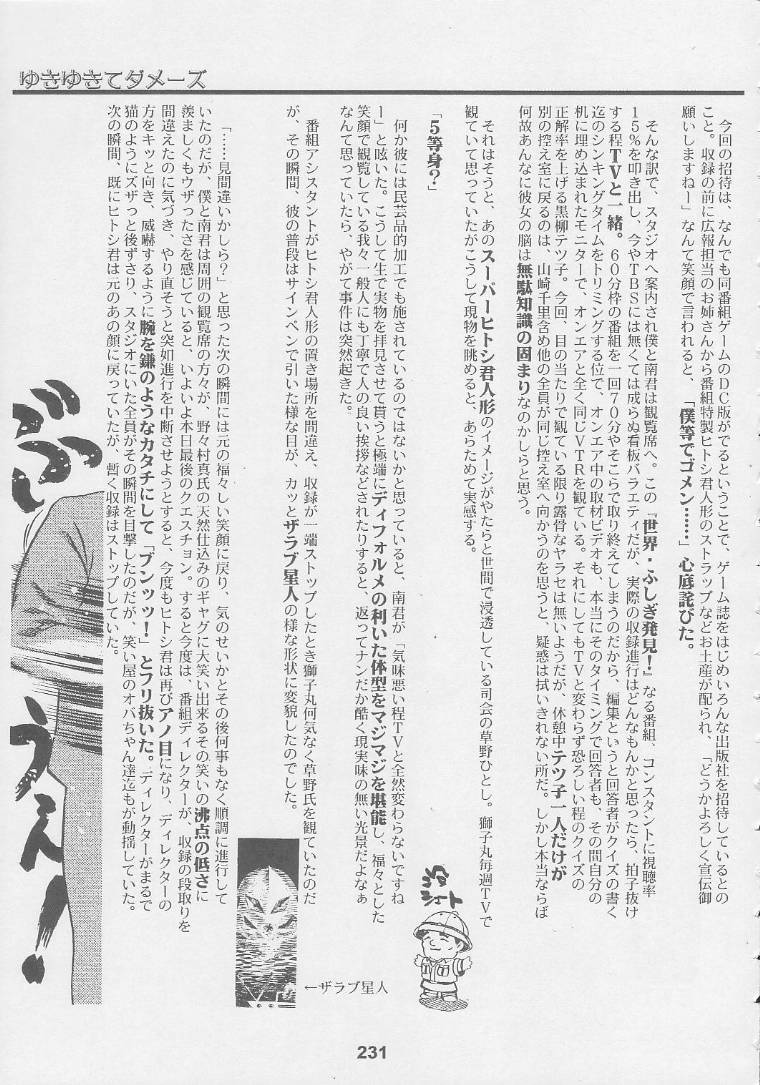 ゆきゆきてダメーズ
　今回の招待は、なんでも同番組ゲームのDC版がでるということで、ゲーム誌をはじめいろんな出版社を招待しているとの
こと。収録の前に広報担当のお姉さんから番組特製ヒトシ君人形のストラップなどお土産が配られ、「どうかよろしく宣伝御
願いしますねー」なんて笑顔で言われると、「僕等でゴメン……」心底詫びた。
　そんな訳で、スタジオへ案内され僕と南君は観覧席へ。この『世界・ふしぎ発見！』なる番組、コンスタントに視聴率
１５％を叩き出し、今やＴＢＳには無くては成らぬ看板バラエティだが、実際の収録進行はどんなもんかと思ったら、拍子抜け
する程ＴＶと一緒。６０分枠の番組を一回７０分やそこらで取り終えてしまうのだから、編集というと回答者がクイズの書く
迄のシンキングタイムをトリミングする位で、オンエア中の取材ビデオも、本当にそのタイミングで回答者も、その間自分の
机に埋め込まれたモニターで、オンエアと全く同じＶＴＲを観ている。それにしてもＴＶと変わらず恐ろしい程のクイズの
正解率を上げる黒柳テツ子。今回、目の当たりで観ている限り露骨なヤラセは無いようだが、休憩中テツ子一人だけが
別の控え室に戻るのは、山崎千里含め他の全員が同じ控え室へ向かうのを思うと、疑惑は拭いきれない所だ。しかし本当ならば
何故あんなに彼女の脳は無駄知識の固まりなのかしらと思う。
　それはそうと、あのスーパーヒトシ君人形のイメージがやたらと世間で浸透している司会の草野ひとし。獅子丸毎週ＴＶで
観ていて思っていたがこうして現物を眺めると、あらためて実感する。
「５等身？」
　何か彼には民芸品的加工でも施されているのではないかと思っていると、南君が「気味悪い程ＴＶと全然変わらないですね
ー」と呟いた。こうして生で実物を拝見させて貰うと極端にディフォルメの利いた体型をマジマジを堪能し、福々とした
笑顔で観覧している我々一般人にも丁寧で人の良い挨拶などされたりすると、返ってナンだか酷く現実味の無い光景だよなぁ
なんて思っていたら、やがて事件は突然起きた。
　番組アシスタントがヒトシ君人形の置き場所を間違え、収録が一端ストップしたとき獅子丸何気なく草野氏を観ていたのだ
が、その瞬間、彼の普段はサインペンで引いた様な目が、カッとザラブ星人の様な形状に変貌したのでした。
　「……見間違いかしら？」と思った次の瞬間には元の福々しい笑顔に戻り、気のせいかとその後何事もなく順調に進行して
いたのだが、僕と南君は周囲の観覧席の方々が、野々村真氏の天然仕込みのギャグに大笑い出来るその笑いの沸点の低さに
羨ましくもウザったさを感じていると、いよいよ本日最後のクエスチョン。すると今度は、番組ディレクターが、収録の段取りを
間違えたのに気づき、やり直そうと突如進行を中断させようとすると、今度もヒトシ君は再びアノ目になり、ディレクターの
方をキッと向き、威嚇するように腕を鎌のようなカタチにして「ブンッッ！」とフリ抜いた。ディレクターがまるで
猫のようにズザっと後ずさり、スタジオにいた全員がその瞬間を目撃したのだが、笑い屋のオバちゃん達迄もが動揺していた。
次の瞬間、既にヒトシ君は元のあの顔に戻っていたが、暫く収録はストップしていた。
←ザラブ星人
231